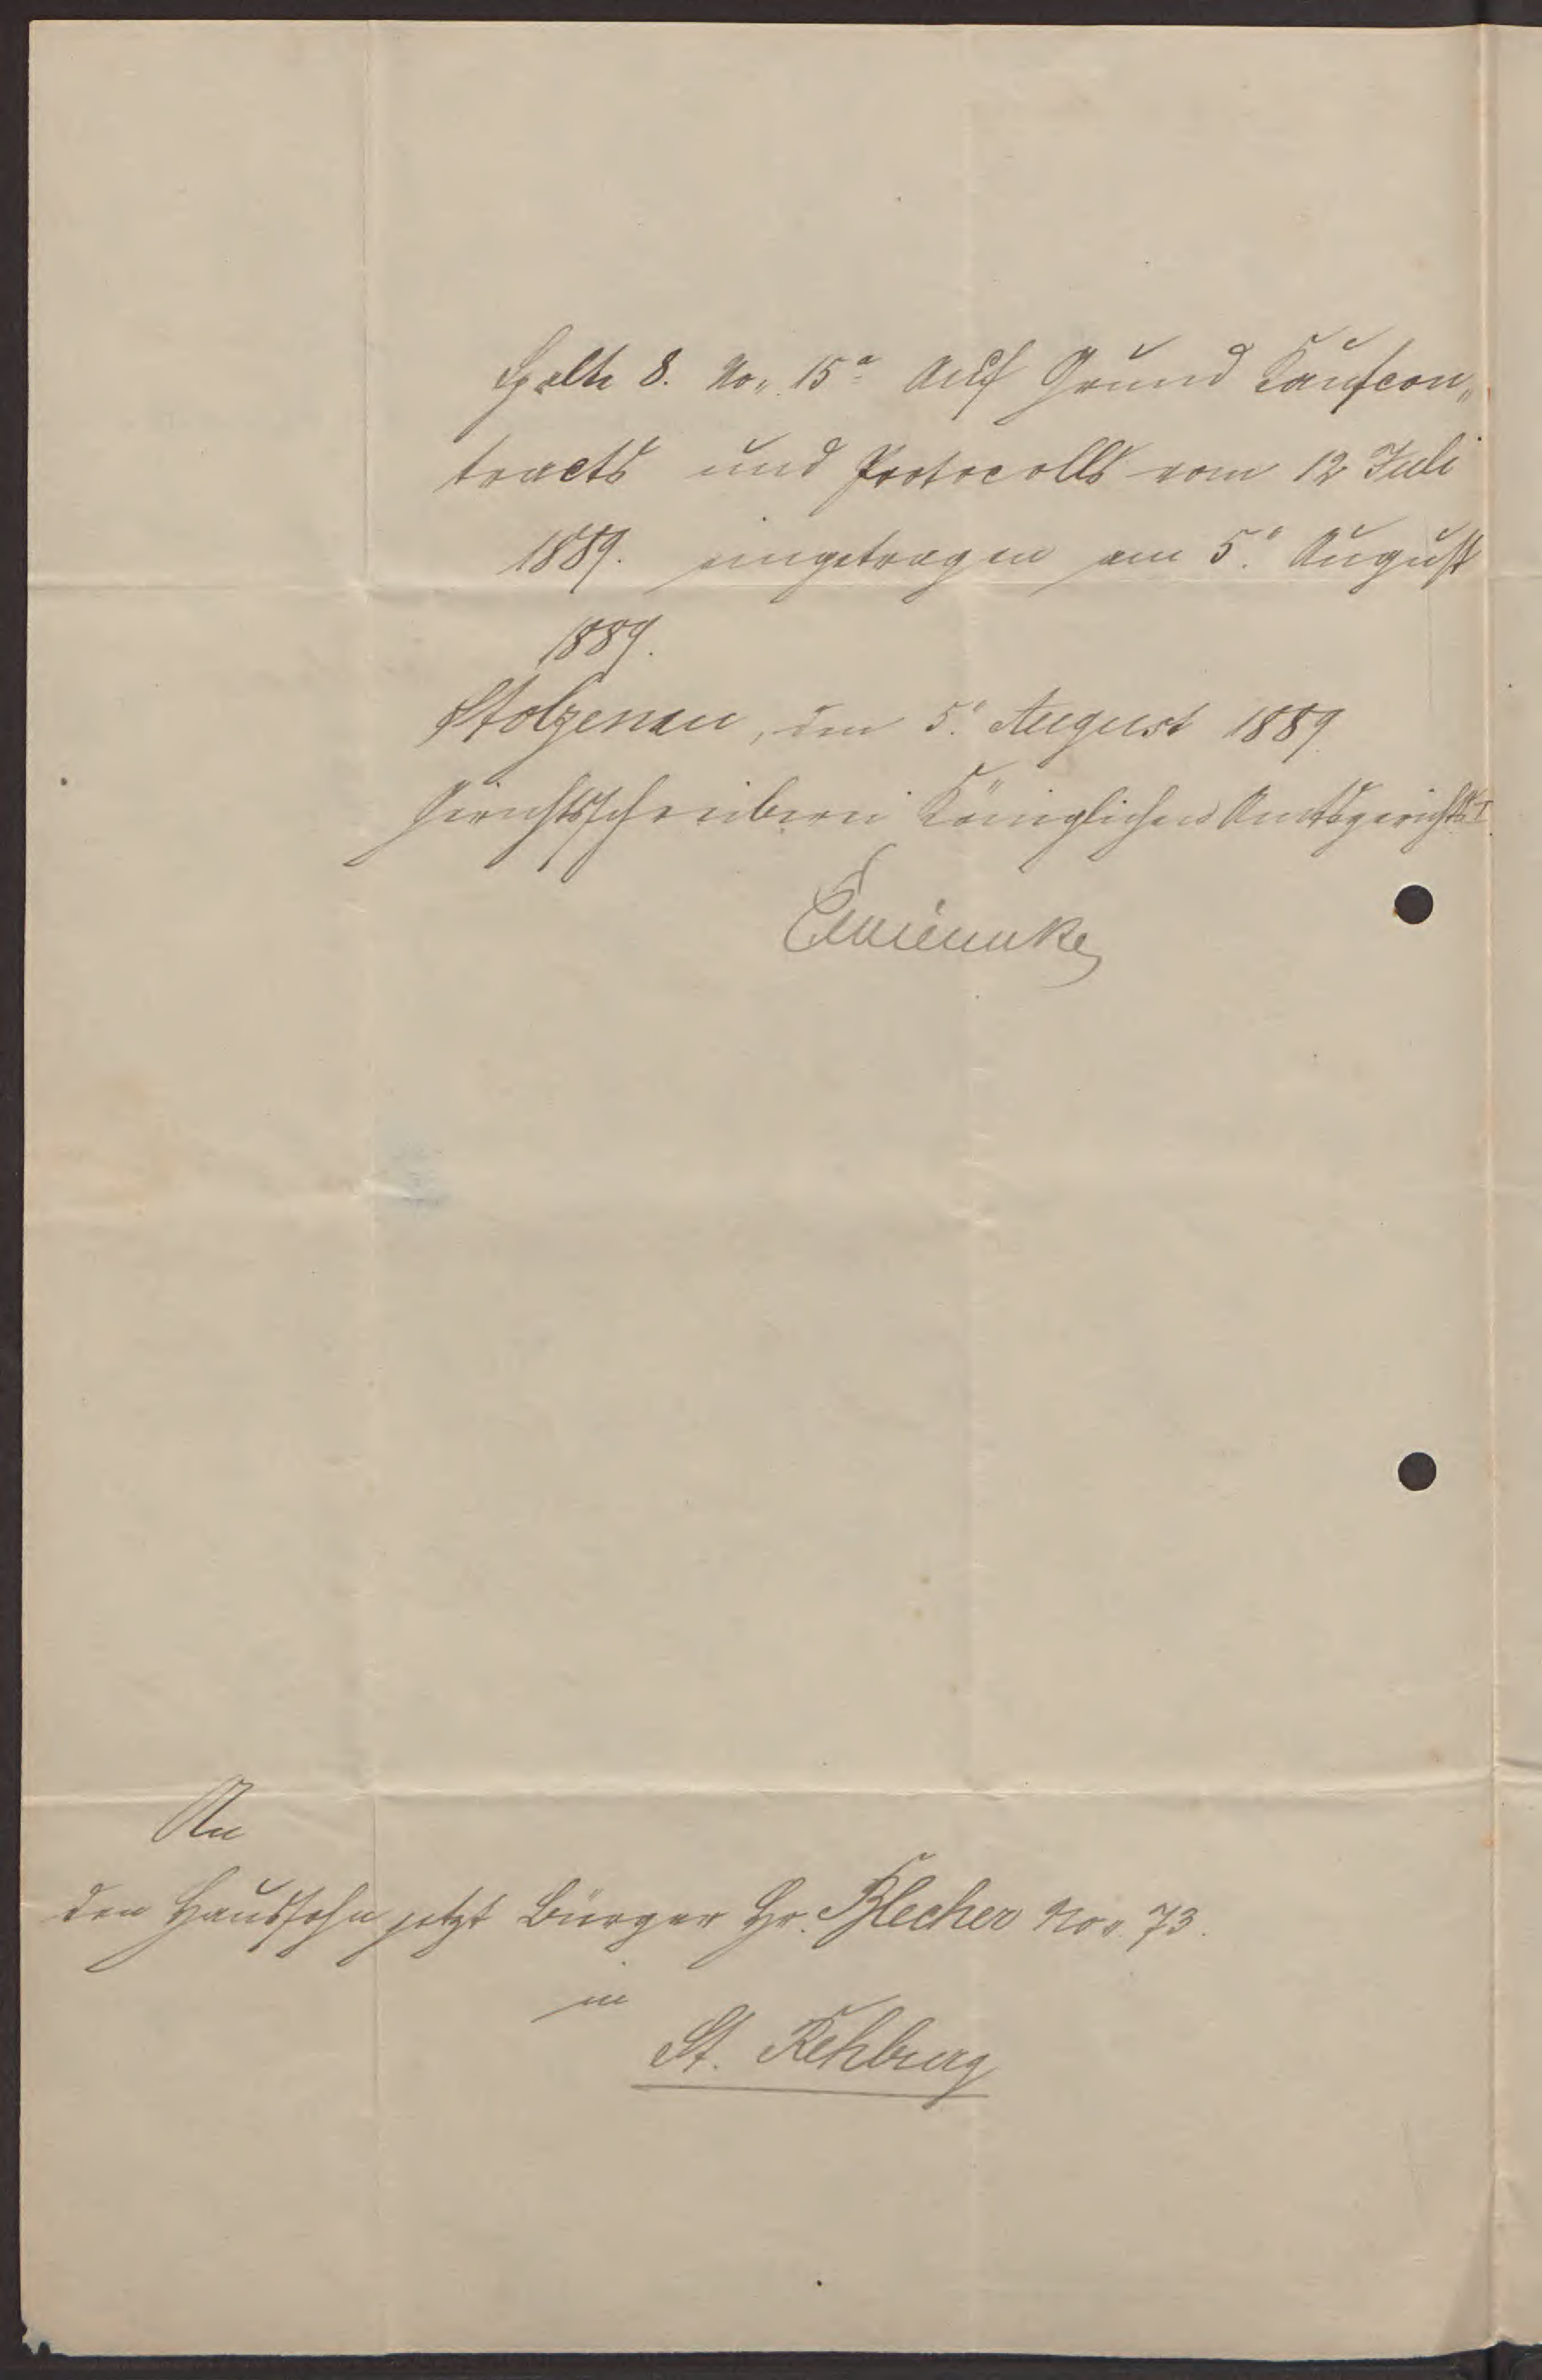 Spalte 8. No. 15a Auf Grund Kaufcon„
tracts und Protocolls vom 12 Juli
1889. eingetragen am 5. August
1889.
Stolzenau, den 5. August 1889
Gerichtsschreiberei Königlichen Amtsgerichts I
An
den Haussohn jetzt Bürger Hr. Blecher No. 73.
in
St. Rehburg